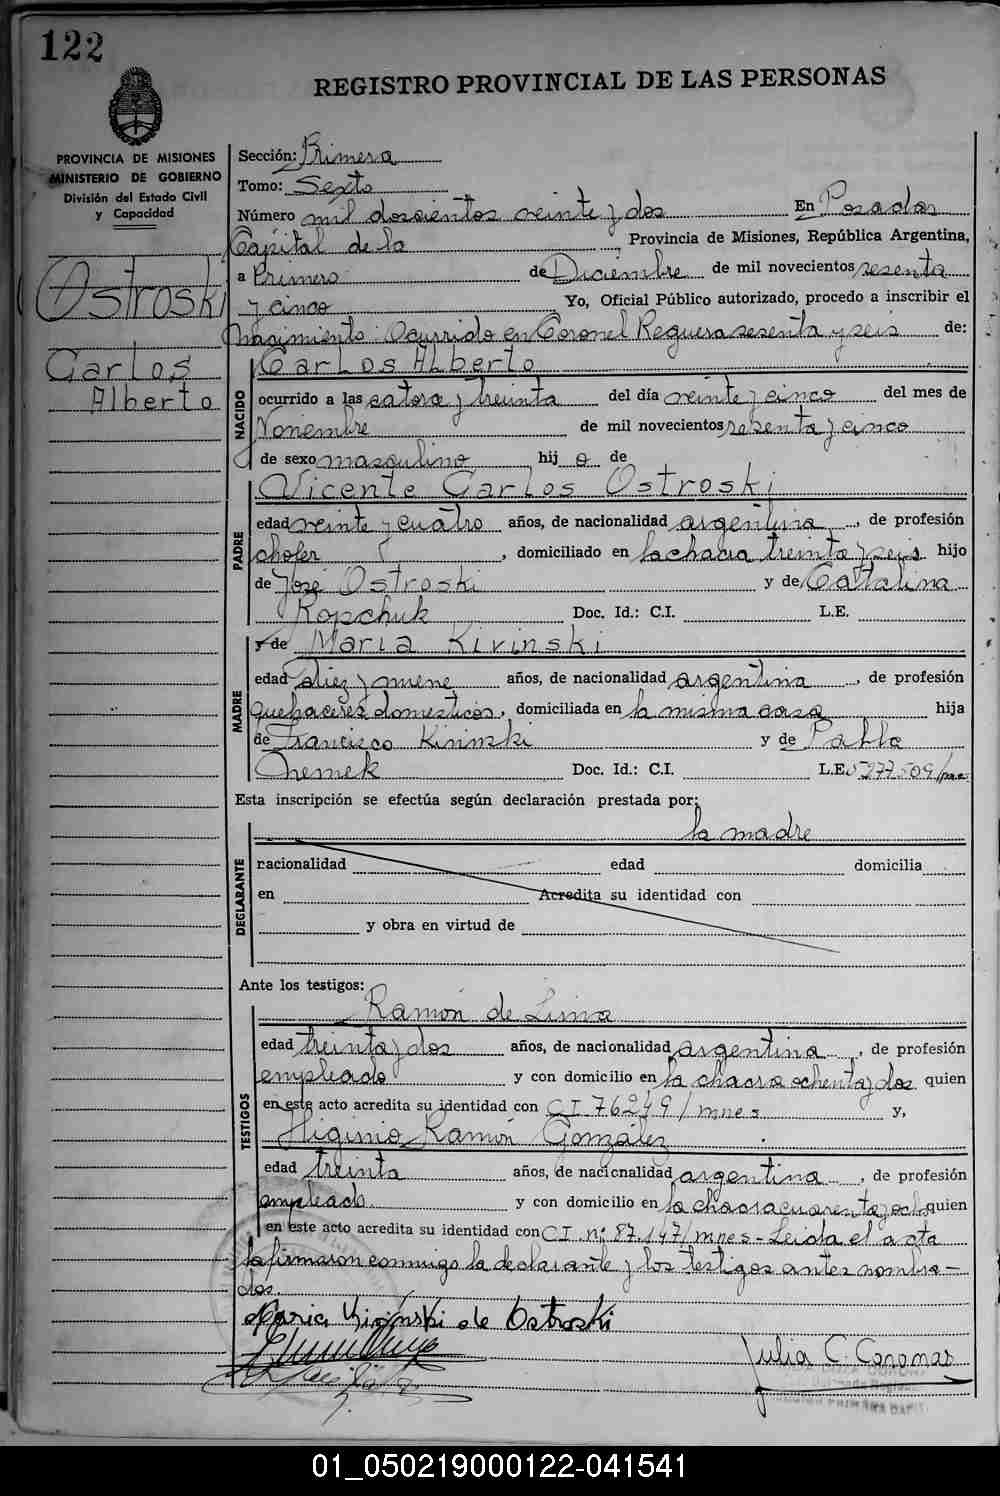 122
REGISTRO PROVINCIAL DE LAS PERSONAS
PROVINCIA DE MISIONES
MINISTERIO DE GOBIERNO
División del Estado Civil
y Capacidad
Ostroski
Carlos
Alberto
Sección: Primera
Tomo: Sexto
Número mil doscientos veinte y dos En Posadas
Capital de la Provincia de Misiones, República Argentina,
a Primero de Diciembre de mil novecientos sesenta
y cinco Yo, Oficial Público autorizado, procedo a inscribir el
Nacimiento: Ocurrido en Coronel Reguera sesenta y seis de:
NACIDO
Carlos Alberto
ocurrido a las catorce y treinta del día veinte y cinco del mes de
Noviembre de mil novecientos sesenta y cinco
de sexo masculino hijo de
PADRE
Vicente Carlos Ostroski
edad veinte y cuatro años, de nacionalidad argentina, de profesión
chofer, domiciliado en la chacra treinta y seis hijo
de José Ostroski y de Catalina
Kopchuk Doc. Id.: C.I. L.E.
MADRE
y de Maria Kirinski
edad diez y nueve años, de nacionalidad argentina, de profesión
quehaceres domesticos, domiciliada en la misma casa hija
de Francisco Kirinski y de Pabla
Chemek Doc. Id.: C.I. L.E. 5277509/mnes
Esta inscripción se efectúa según declaración prestada por:
la madre
DECLARANTE
nacionalidad edad domicilia
en Acredita su identidad con
y obra en virtud de
Ante los testigos:
TESTIGOS
Ramón de Lima
edad treinta y dos años, de nacionalidad argentina, de profesión
empleado y con domicilio en la chacra ochenta y dos quien
en este acto acredita su identidad con CI 76249/mnes y,
Higinio Ramón González
edad treinta años, de nacionalidad argentina, de profesión
empleado y con domicilio en la chacra cuarenta y ocho quien
en este acto acredita su identidad con CI nº 87.147/mnes - Leida el acta
la firmaron conmigo la declarante y los testigos antes nombra-
dos.
Maria Kirinski de Ostroski
Julia C. Coronas
01_050219000122-041541